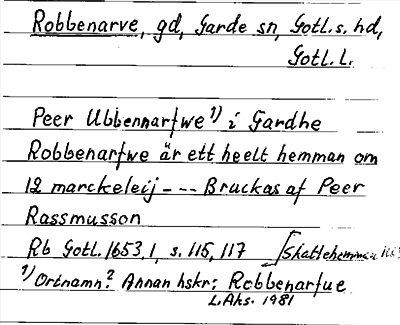 Robbenarve, gd, Garde sn, Gotl. s. hd,
Gotl. L.
Peer Ubbennarfwe 1) i Gardhe
Robbenarfwe är ett heelt hemman om
12 marckeleij --- Bruckas af Peer
Rassmusson
Rb Gotl. 1653, 1, s. 115, 117 [Skattehemman
1) Ortnamn? Annan hskr: Robbenarfue
L. Ahs. 1981